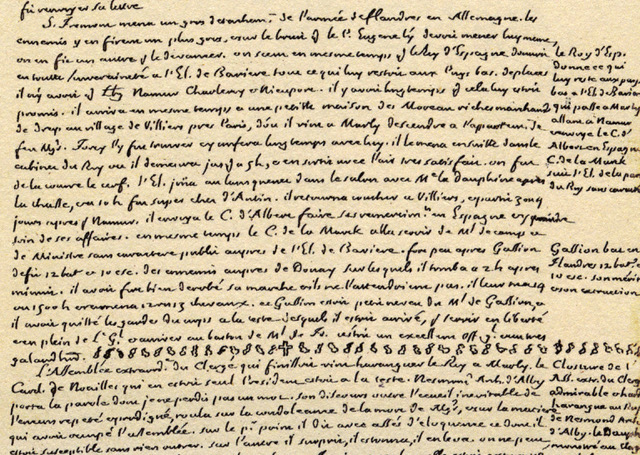 fit renvoyer sa lettre
S. Fremont mena un gros detachem.t de l'armée de Flandres en Allemagne. les
ennemis y en firent un plus gros, et sur le bruit que le P.e Eugene luy devoit mener luy mesme,
on en fit un autre pour le devancer. on sceut en mesme temps que le Roy d'Espagne donnoit
en toutte souveraineté à l'El. de Baviere tout ce qui luy restoit aux Pays bas. de places
il n'y avoit que Namur Charleroy et Nieuport. il y avoit long temps que cela luy estoit
promis. il arriva en mesme temps à une petitte maison des Moreau riches marchands
de drap au village de Villiers pres Paris, d'où il vint à Marly descendre à l'apartem.t de
feu Mgr. Torcy l'y fut trouver et y conféra long temps avec luy. il le mena ensuitte dans le
cabinet du Roy où il demeura jusqu'à 5 h. et en sortit avec l'air tres satisfait. on fut
de là courre le cerf. l'El. joüa au lansquenet dans le salon avec Me la Dauphine après
la chasse, et à 10 h. fut souper chez d'Antin. il retourna coucher à Villiers, et partit 3 ou 4
jours apres pour Namur. il envoya le C. d'Albert faire ses remerciem.ts en Espagne et y prendre
soin de ses affaires. en mesme temps le C. de la Marck alla servir de M.l de camp et
de Ministre sans caractere public aupres de l'El. de Baviere. fort peu apres Gassion
defit 12 bat. et 10 esc. des ennemis aupres de Douay sur lesquels il tomba à 2 h. apres
minuit. il avoit fort bien derobé sa marche et ils ne l'attendoient pas. il leur tua 4
ou 1500 h. et ramena 12 ou 13 chevaux. ce Gassion estoit petit neveu du M.l de Gassion, et
il avoit quitté les gardes du corps à la teste desquels il estoit arrivé, pour servir en liberté
et en plein de L.t G.l et arriver au baston de M.l de Fr. c'estoit un excellent off. g.l et un tres
galand hom.
L'Assemblée extraord. du Clergé qui finissoit vint haranguer le Roy à Marly. le
Card. de Noailles qui en estoit seul President estoit à la teste. Nesmond Arch. d'Alby
porta la parole dont je ne perdis pas un mot. son discours outre l'écueil inevitable de
l'encens repeté et prodigué, roula sur la condoleance de la mort de Mgr, et sur la matiere
qui avoit occupé l'assemblée. sur le p.r point il dit avec assés d'eloquence ce dont il
estoit susceptible sans rien outrer. sur l'autre il surprit, il estonna, il enleva. on ne peut
le Roy d'Esp.
donne ce qui
luy reste aux pays
bas à l'El. de Baviere
qui passe à Marly
allant à Namur
et envoye le C. d'
Albert en Espagne
C. de la Marck
suit l'El. de la part
du Roy sans caractere
Gassion bat en
Flandres 12 bat. et
10 esc. son merite
et son extraction
Closture de l'
Ass. extr. du Clergé
admirable et hardie
harangue au Roy
de Nesmond Arch.
d'Alby. le Dauphin